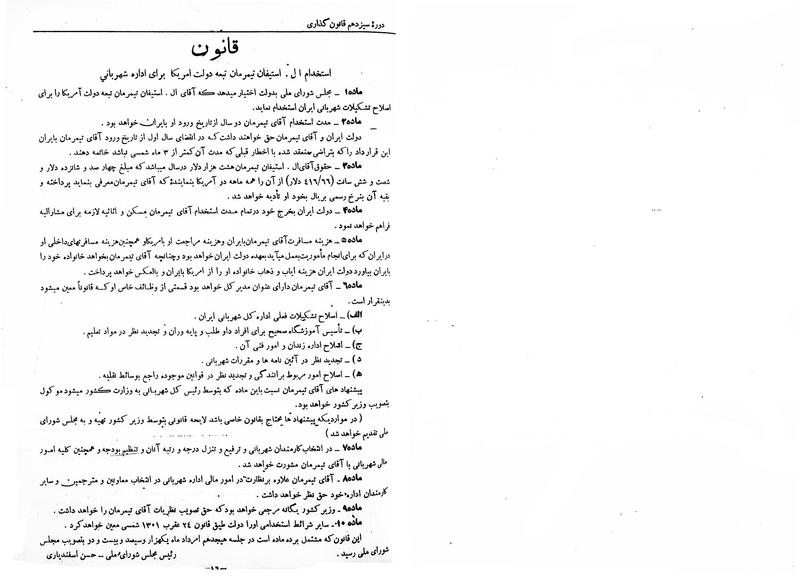 دورهٔ سیزدهم قانون گذاری
قانون
استخدام ال . استیفان تیمرمان تبعه دولت امریکا برای اداره شهربانی
ماده۱ ــ مجلس شورای ملی بدولت اختیار میدهد که آقای ال . استیفان تیمرمان تبعه دولت آمریکا را برای
اصلاح تشکیلات شهربانی ایران استخدام نماید.
ماده۲ ــ مدت استخدام آقای تیمرمان دو سال از تاریخ ورود او بایران خواهد بود .
دولت ایران و آقای تیمرمان حق خواهند داشت که در انقضای سال اول از تاریخ ورود آقای تیمرمان بایران
این قرارداد را که بتراضی منعقد شده با اخطار قبلی که مدت آن کمتر از ۳ ماه شمسی نباشد خاتمه دهند .
ماده۳ ــ حقوق آقای ال . استیفان تیمرمان هشت هزار دلار در سال میباشد که مبلغ چهار صد و شانزده دلار و
شصت و شش سانت (۴۱۶/۶۶ دلار) از آن را همه ماهه دو آمریکا بنمایندۀ که آقای تیمرمان معرفی بنماید پرداخته و
بقیه آن بنرخ رسمی بریال بخود او تأدیه خواهد شد .
ماده۴ ــ دولت ایران بخرج خود در تمام مدت استخدام آقای تیمرمان مسکن و اثاثیه لازمه برای مشارالیه
فراهم خواهد نمود .
ماده۵ ــ هزینه مسافرت آقای تیمرمان بایران و هزینه مراجعت او بامریکا و همچنین هزینه مسافرتهای داخلی او
در ایران که برای انجام مأموریت بعمل میآید بعهده دولت ایران خواهد بود و چنانچه آقای تیمرمان بخواهد خانواده خود را
بایران بیاورد دولت ایران هزینه ایاب و ذهاب خانواده او را از امریکا بایران و بالعکس خواهد پرداخت .
ماده۶ ــ آقای تیمرمان دارای عنوان مدیر کل خواهد بود قسمتی از وظائف خاص او که قانوناً معین میشود
بدینقرار است .
الف) ــ اصلاح تشکیلات فعلی اداره کل شهربانی ایران .
ب) ــ تأسیس آموزشگاه صحیح برای افراد داو طلب و پایه وران و تجدید نظر در مواد تعلیم .
ج) ــ اصلاح اداره زندان و امور فنی آن .
د) ــ تجدید نظر در آئین نامه ها و مقررات شهربانی .
ه) ــ اصلاح امور مربوط برانندگی و تجدید نظر در قوانین موجوده راجع بوسائط نقلیه .
پیشنهاد های آقای تیمرمان نسبت باین ماده که بتوسط رئیس کل شهربانی به وزارت کشور میشود موکول
بتصویب وزیر کشور خواهد بود.
( در مواردیکه پیشنهاد ها محتاج بقانون خاصی باشد لایحه قانونی بتوسط وزیر کشور تهیه و به مجلس شورای
ملی تقدیم خواهد شد )
ماده۷ ــ در انتخاب کارمندان شهربانی و ترفیع و تنزل درجه و رتبه آنان و تنظیم بودجه و همچنین کلیه امور
مالی شهربانی با آقای تیمرمان مشورت خواهد شد .
ماده۸ ــ آقای تیمرمان علاوه بر نظارت در امور مالی اداره شهربانی در انتخاب معاونین و مترجمین و سایر
کارمندان اداره خود حق نظر خواهد داشت .
ماده۹ ــ وزیر کشور یگانه مرجعی خواهد بود که حق تصویب نظریات آقای تیمرمان را خواهد داشت .
ماده ۱۰ــ سایر شرائط استخدامی اورا دولت طبق قانون ۲۴ عقرب ۱۳۰۱ شمسی معین خواهد کرد .
این قانون که مشتمل برده ماده است در جلسه هیجدهم امرداد ماه یکهزار و سیصد و بیست و دو بتصویب مجلس
شورای ملی رسید . رئیس مجلس شورای ملی ــ حسن اسفندیاری
ــ۱۶ــ